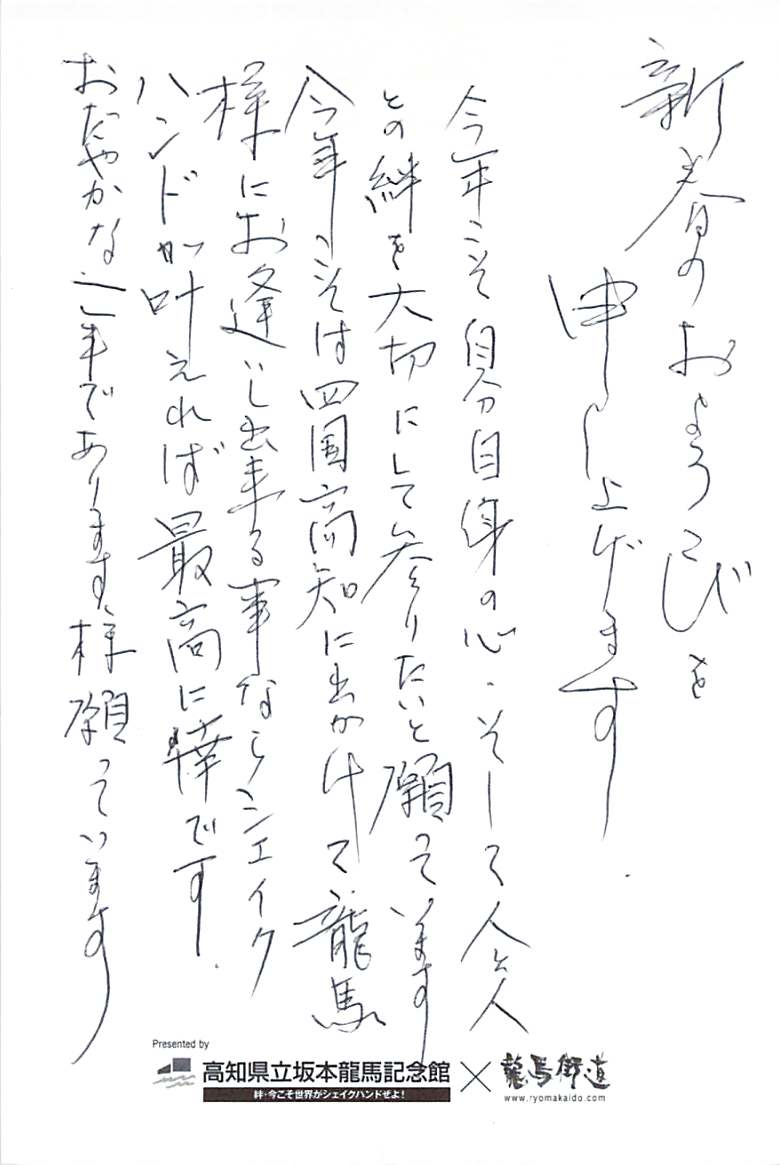 新春のおよろこびを
申し上げます
今年こそ自分自身の心、そして人と人
との絆を大切にして参りたいと願っています
今年こそは四国高知に出かけて龍馬
様にお逢いし出来る事ならシェイク
ハンドが叶えれば最高に幸です
おだやかな年であります様願っています
Presented by
高知県立坂本龍馬記念館×龍馬街道
絆・今こそ世界がシェイクハンドせよ!
www.ryomakaido.com